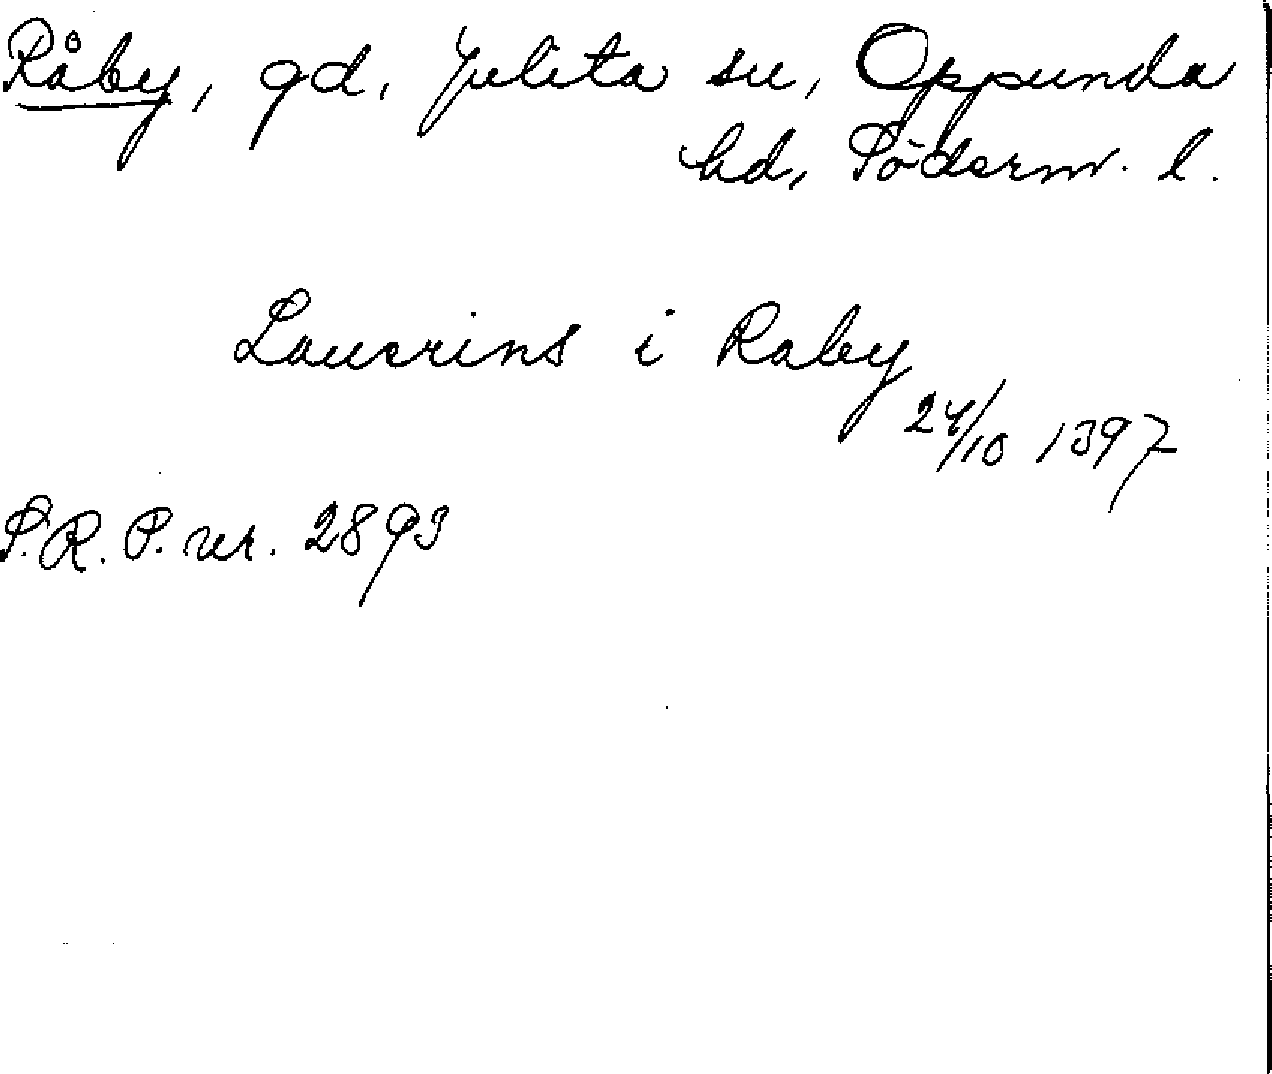 Råby, gd, Julita sn, Oppunda
hd, Söderm. l.
Laurins i Raby
24/10 1397
S.R.P. nr. 2893